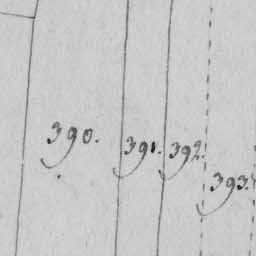 390.
391.
392.
393.